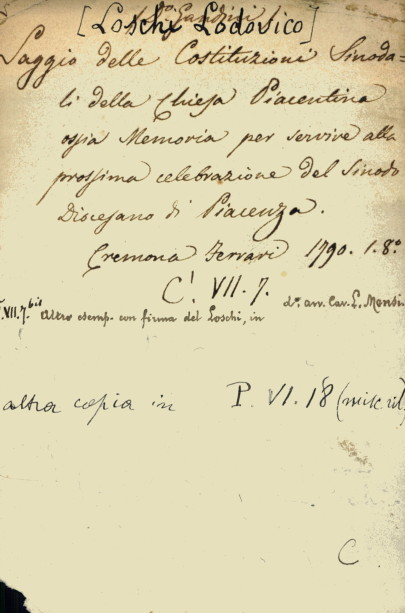 [Loschi Lodovico]
Saggio delle Costituzioni Sinoda=
li della Chiesa Piacentina
ossia Memoria per servire alla
prossima celebrazione del Sinodo
Diocesano di Piacenza.
Cremona Ferrari 1790. 1. 8°.
C! VII. 7.
d°. avv. Cav. L. Mensi
VII.7.bis Altro esemp. con firma del Loschi, in
altra copia in P. VI. 18
C